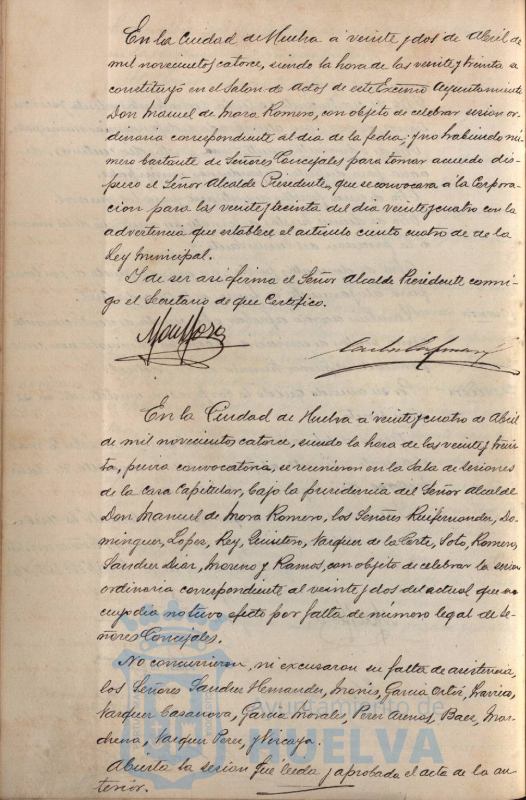 En la Ciudad de Huelva á veinte y dos de Abril de
mil novecientos catorce, siendo la hora de las veinte y treinta se
constituyó en el Salon de actos de este Excmo Ayuntamiento
Don Manuel de Mora Romero, con objeto de celebrar sesion or-
dinaria correspondiente al dia de la fecha; y no habiendo nú-
mero bastante de Señores Concejales para tomar acuerdo dis-
puso el Señor Alcalde Presidente, que se convocara á la Corpora-
cion para las veinte y treinta del dia veinte y cuatro con la
advertencia que establece el artículo ciento cuatro de de la
Ley Municipal.
Y de ser asi firma el Señor Alcalde Presidente conmi-
go el Secretario de que Certifico.
Man Mora
En la Ciudad de Huelva á veinte y cuatro de Abril
de mil novecientos catorce, siendo la hora de las veinte y trein-
ta, previa convocatoria, se reunieron en la Sala de Sesiones
de la Casa Capitular, bajo la presidencia del Señor Alcalde
Don Manuel de Mora Romero, los Señores Ruifernandez, Do-
minguez, Lopez, Rey, Quintero, Vazquez de la Corte, Soto, Romero,
Sanchez Diaz, Moreno y Ramos, con objeto de celebrar la sesion
ordinaria correspondiente al veinte y dos del actual que
cuyo dia no tuvo efecto por falta de número legal de Se-
ñores Concejales.
No concurrieron, ni excusaron su falta de asistencia,
los Señores Sanchez Hernandez, Monis, Garcia Ortiz,
Vazquez Casanova, Garcia Morales, Perez Arenas, Baez, Mar-
chena, Vazquez Perez y Vizcaya.
Abierta la sesion fué leida y aprobada el acta de la an-
terior.
Ayuntamiento de
HUELVA